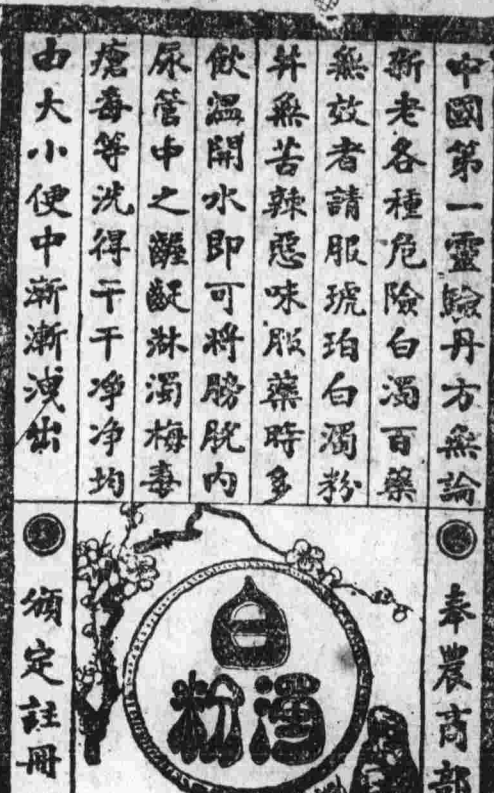 中國第一靈驗丹方無論
新老各種危險白濁百藥
無效者請服琥珀白濁粉
并無苦辣惡味服藥時多
飲溫開水即可將膀胱內
尿管中之齷齪淋濁梅毒
瘡毒等洗得干干凈凈均
由大小便中漸漸洩出
奉農商部
頒定註冊
白
濁粉